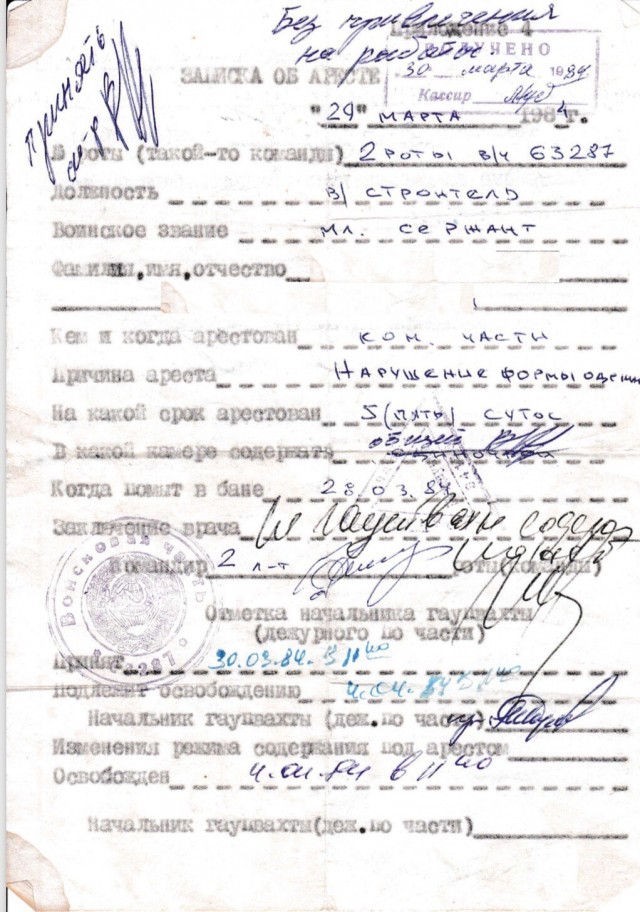 Без привлечения
на работы
Приложение 4
принять
ПОЛУЧЕНО
30 марта 1984
Кассир
ЗАПИСКА ОБ АРЕСТЕ
"29" МАРТА 1984г.
В роты (такой-то команды) 2 РОТЫ В/Ч 63287
Должность В/ СТРОИТЕЛЬ
Воинское звание МЛ. СЕРЖАНТ
Фамилия,имя,отчество
Кем и когда арестован КОМ. ЧАСТИ
Причина ареста НАРУШЕНИЕ ФОРМЫ
На какой срок арестован 5 (ПЯТЬ) СУТОК
В какой камере содержатя общей
Когда помыт в бане 28.03.84
Заключение врача
Командир 2 роты(команды)
Л-Т
Войсковая часть
Отметка начальника гауптвахты
(дежурного по части)
Принят 30.03.84. в 11 40
Подлежит освобождению 4.04.84 в 11 40
Начальник гауптвахты (деж.по части)
Изменения режима содержания под арестом
Освобожден 4.04.84 в 11 40
Начальник гауптвахты(деж.по части)